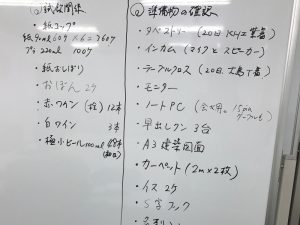 紙コップ
紙90ml 60ケ×6=360ケ
プラ220ml 100ケ
・紙おしぼり
・おぼん 2ケ
・赤ワイン(栓) 12本
・白ワイン 3本
・極小ビール100ml
◎準備物の確認
・タペストリー(20日
・インカム(マイクとスピーカー)
・テーブルクロス(20日
・モニター
・ノートPC
・早出しワン3台
・A3建築図面
・カーペット(2m×2枚)
・イス 2ケ
・S字フック